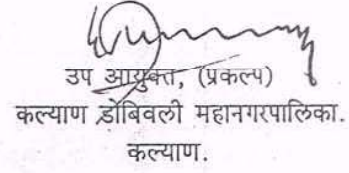 उप आयुक्त, (प्रकल्प)
कल्याण डोंबिवली महानगरपालिका.
कल्याण.